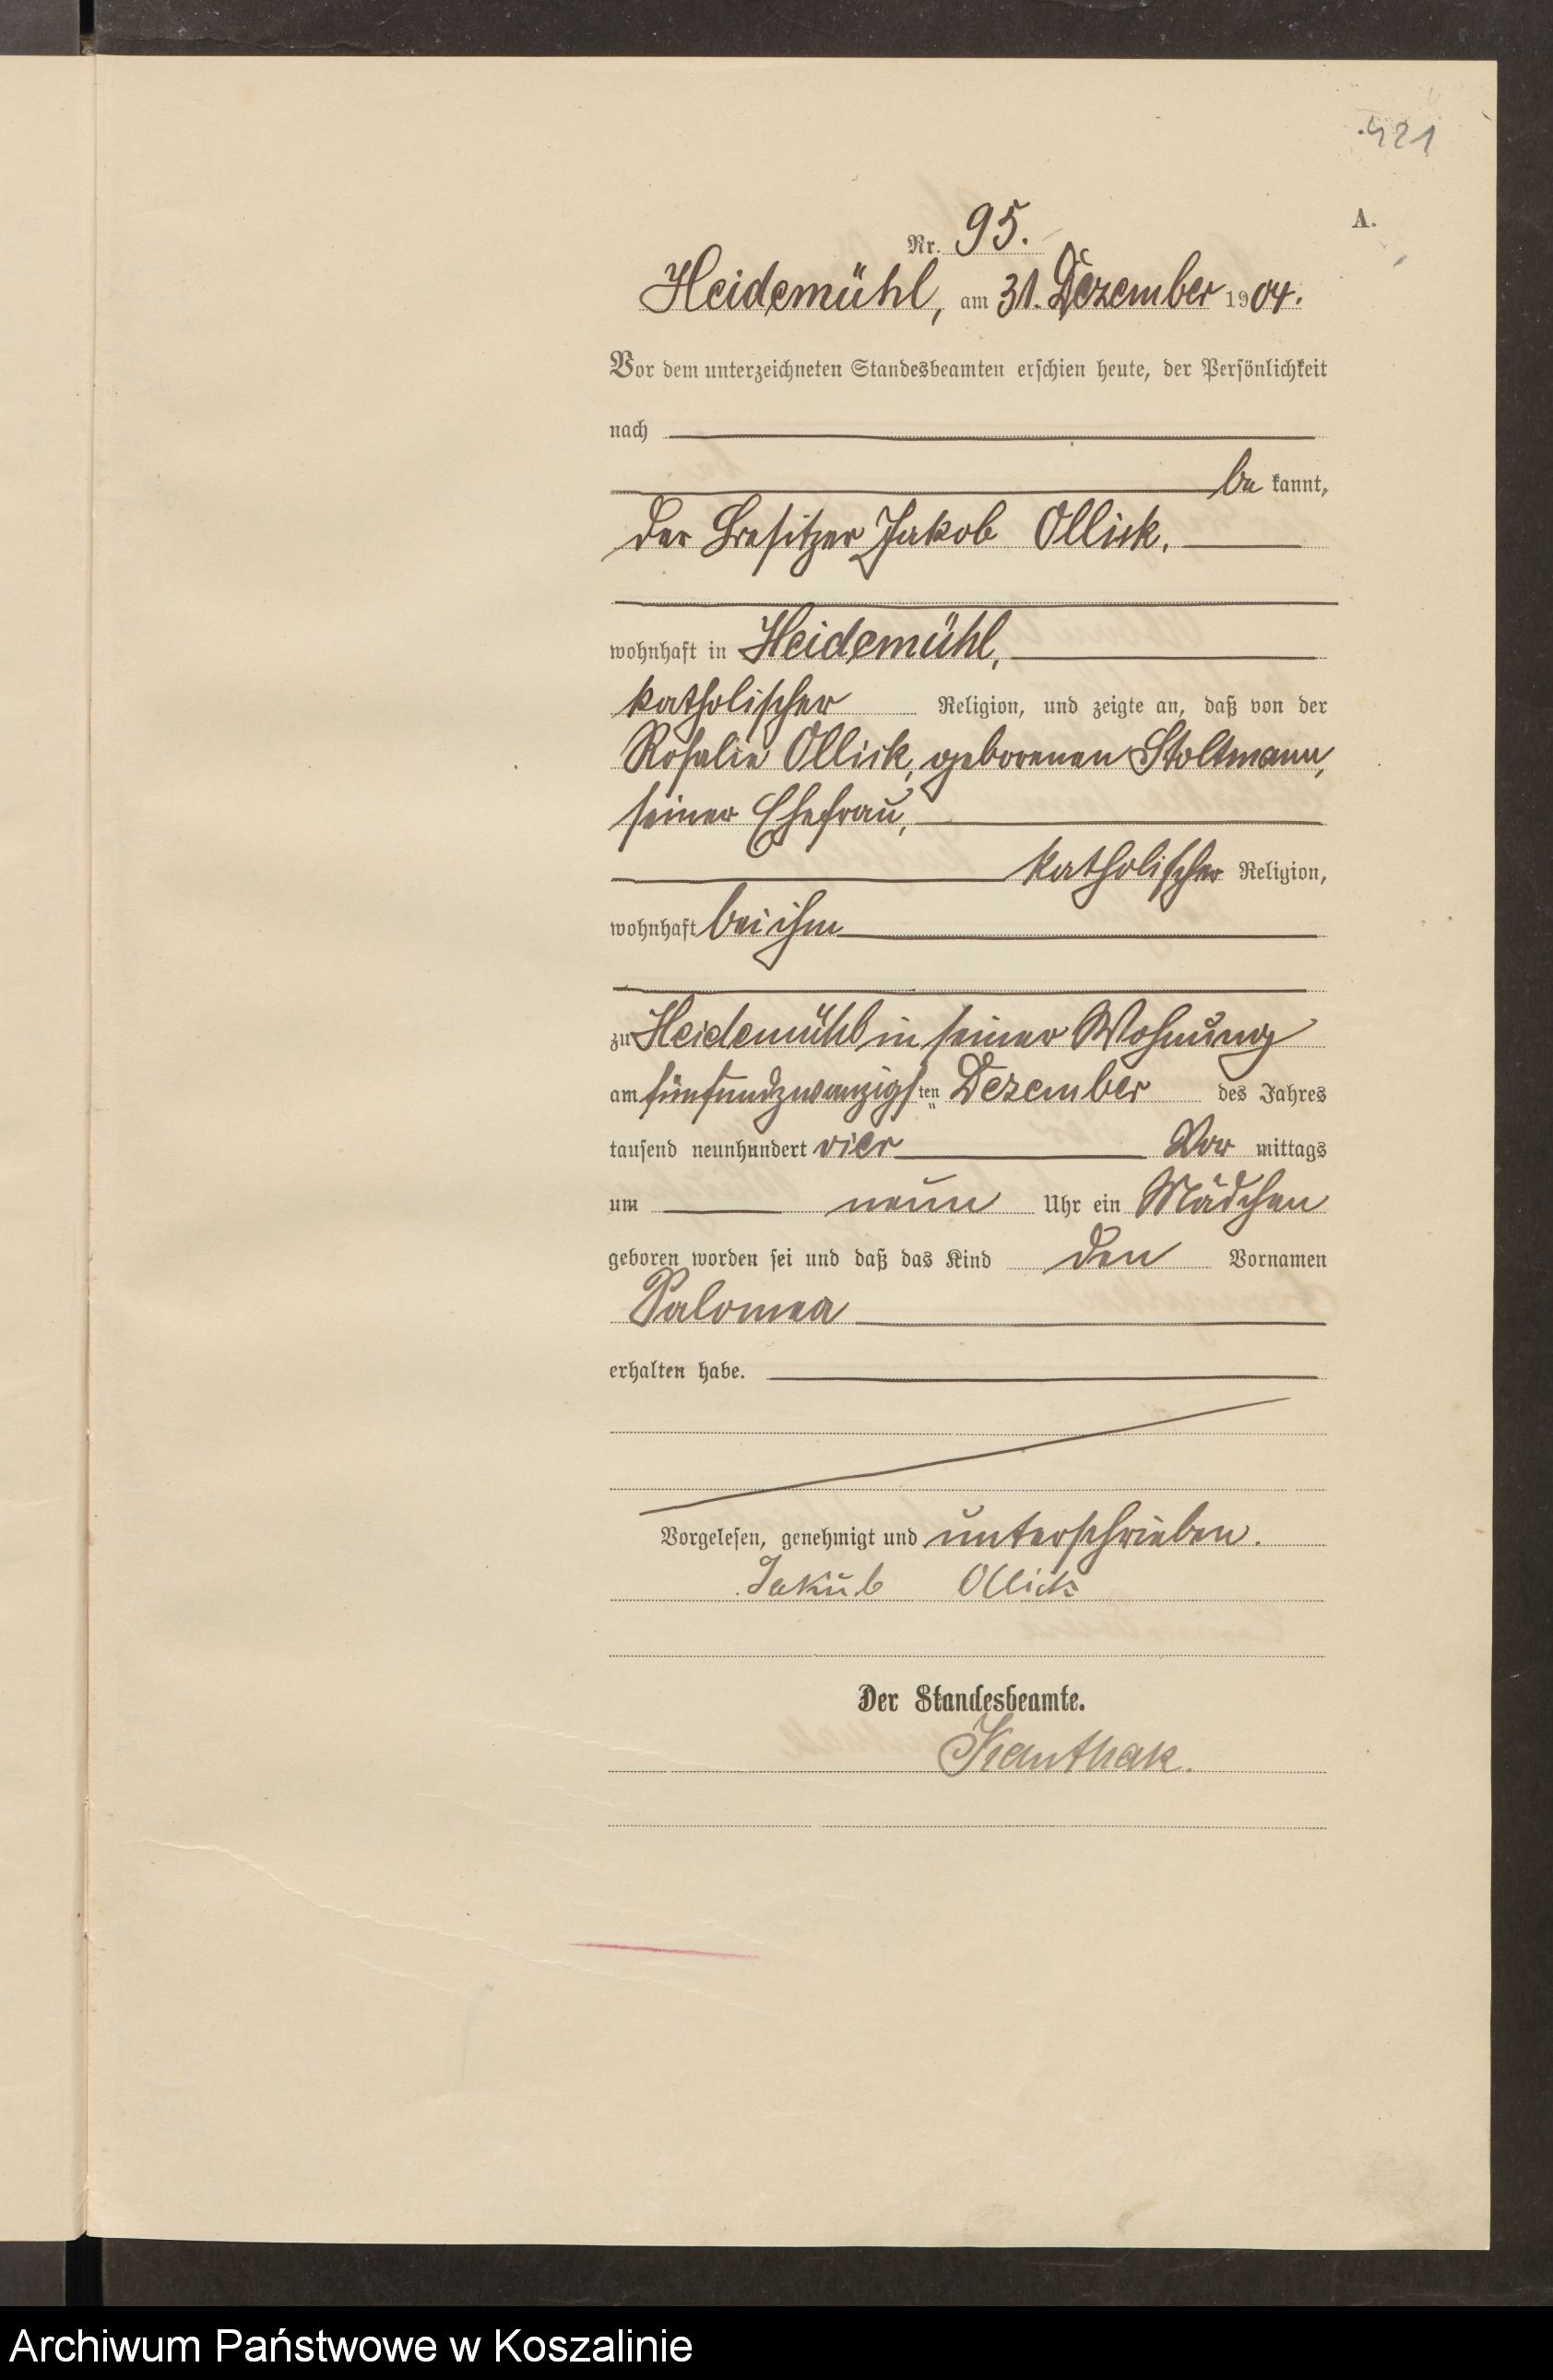 421
A.
Nr. 95.
Heidemühl, am 31. Dezember 1904.
Vor dem unterzeichneten Standesbeamten erschien heute, der Persönlichkeit
nach
be kannt,
der Besitzer Jakob Ollick,
wohnhaft in Heidemühl,
katholischer Religion, und zeigte an, daß von der
Rosalie Ollick, geborenen Stoltmann,
seiner Ehefrau,
katholischer Religion,
wohnhaft bei ihm
zu Heidemühl in seiner Wohnung
am fünfundzwanzigsten Dezember des Jahres
tausend neunhundert vier Vor mittags
um neun Uhr ein Mädchen
geboren worden sei und daß das Kind den Vornamen
Salomea
erhalten habe.
Vorgelesen, genehmigt und unterschrieben.
Jakub Ollick
Der Standesbeamte.
Kanthak.
Archiwum Państwowe w Koszalinie